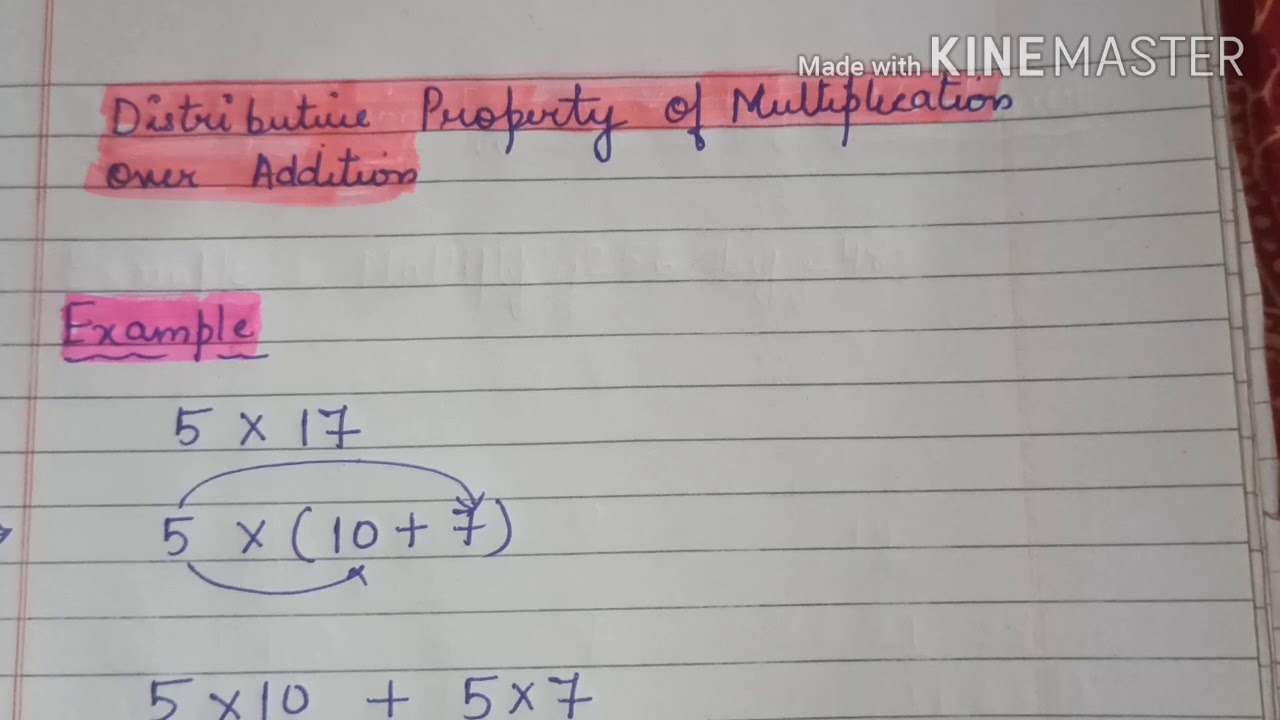 Made with KINEMASTER
Distributive Property of Multiplication
over Addition
Example
5 × 17
5 × (10 + 7)
5 × 10 + 5 × 7